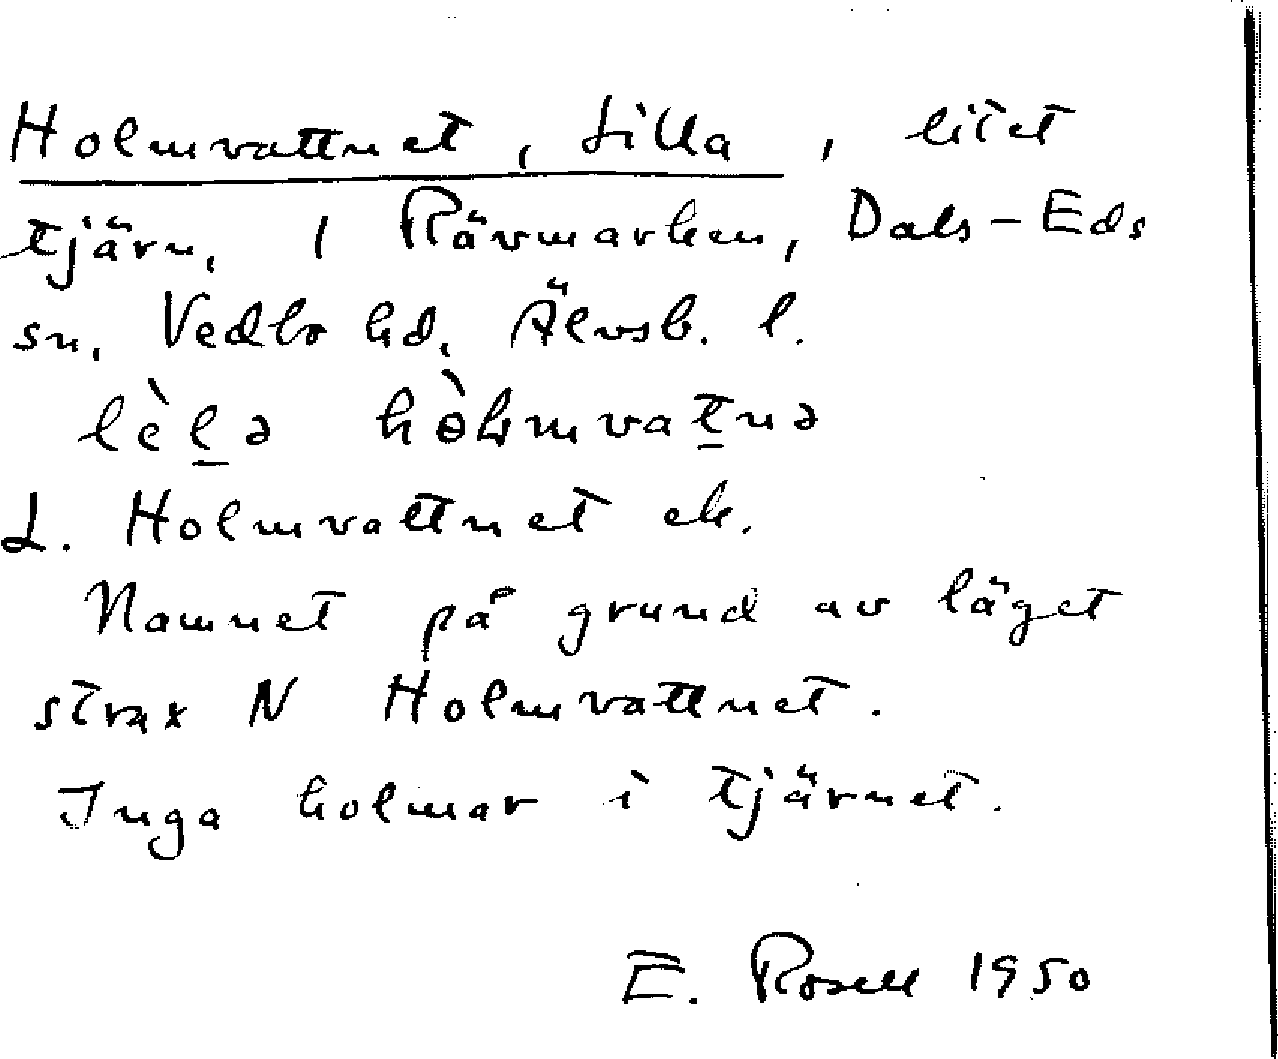 Holmvattnet, Lilla, litet
tjärn, 1 Rävmarken, Dals-Eds
sn, Vedbo hd, Älvsb. l.
lὲlə hòlmvatnə
L. Holmvattnet ek.
Namnet på grund av läget
strax N Holmvattnet.
Inga holmar i tjärnet.
E. Rosell 1950